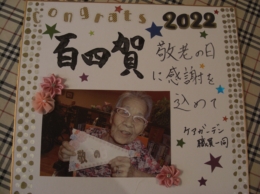 Congrats 2022
百四賀
敬老の日
に感謝を
込めて
ケアガーデン
職員一同